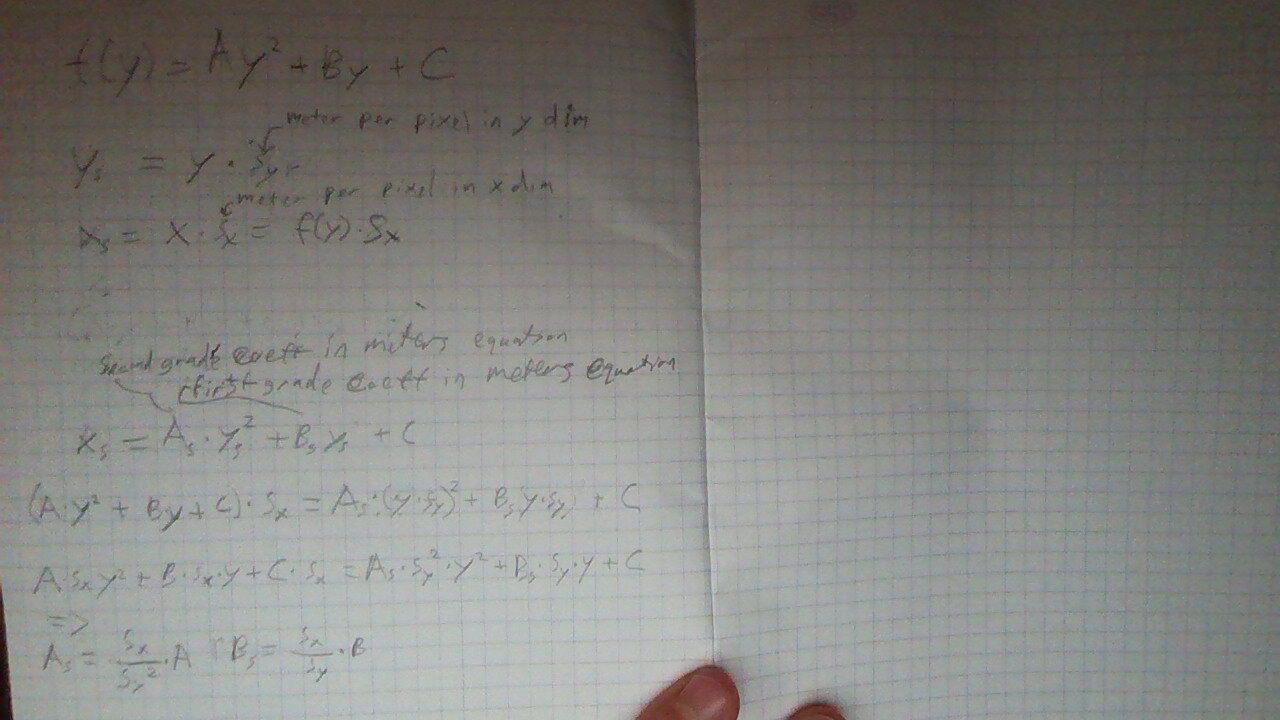 f(y) = Ay² + By + C
meter per pixel in y dim
yₛ = y · Sy
meter per pixel in x dim
xₛ = x · Sx = f(y) · Sx
second grade coeff in meters equation
first grade coeff in meters equation
xₛ = Aₛ · yₛ² + Bₛ yₛ + C
(A·y² + By + C) · Sx = Aₛ · (y · Sy)² + Bₛ y · Sy + C
A·Sx y² + B · Sx · y + C · Sx = Aₛ · Sy² · y² + Bₛ · Sy · y + C
=>
Aₛ = Sx/Sy² · A Bₛ = Sx/Sy · B